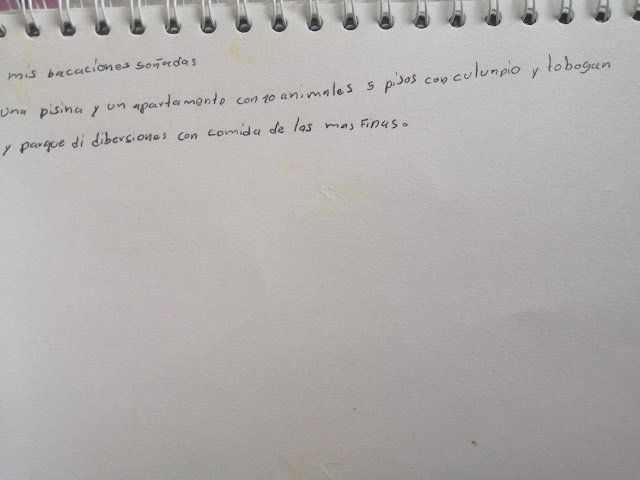 mis bacaciones soñadas
una pisina y un apartamento con 10 animales 5 pisos con culunpio y tobogan
y parque di dibersiones con comida de las mas finas.